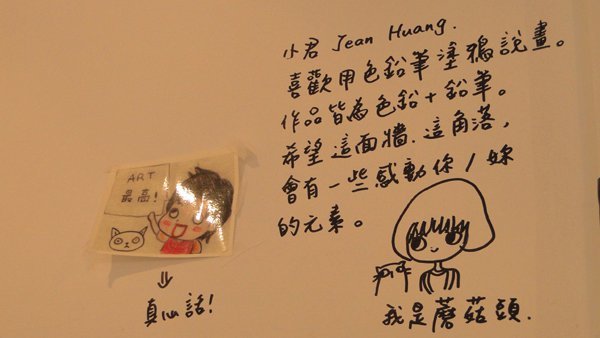 小君 Jean Huang.
喜歡用色鉛筆塗鴉說畫。
作品皆為色鉛+鉛筆。
希望這面牆.這角落,
會有一些感動你/妳
的元素。
ART
最高!
⇓
真心話!
我是蘑菇頭.